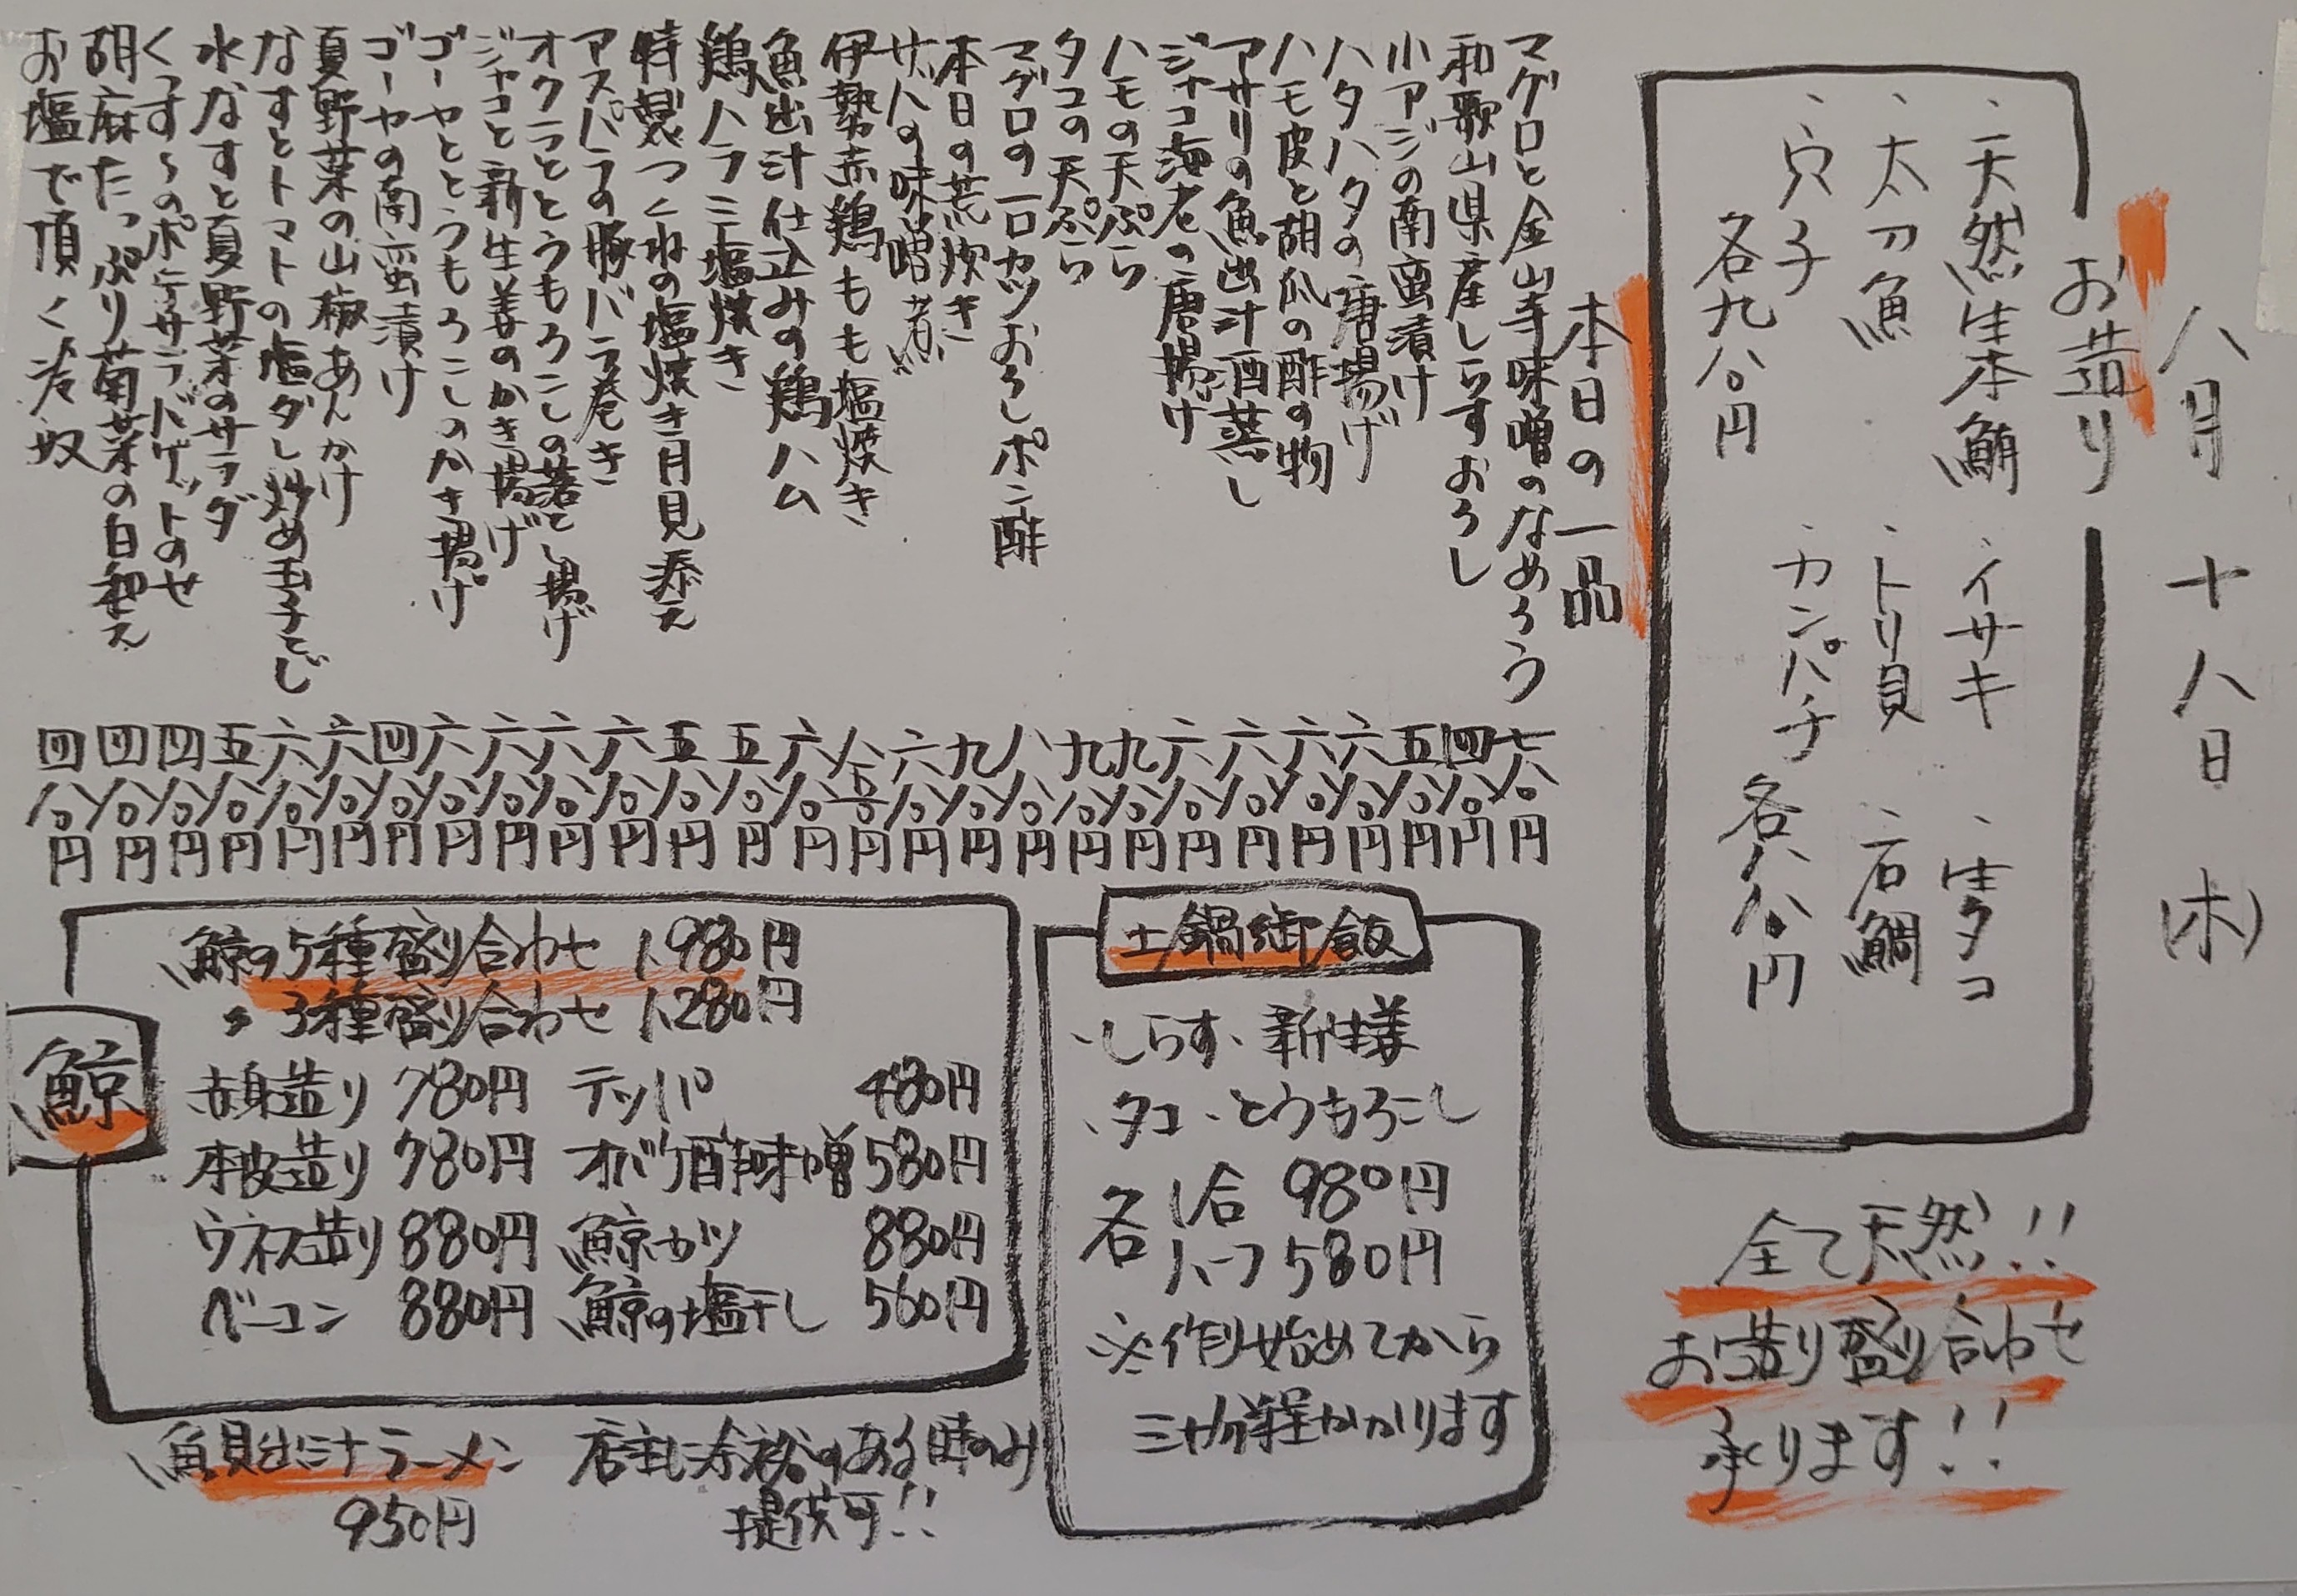 八月十八日(木)
お造り
、天然生本鮪 、イサキ 、生タコ
、太刀魚 、トリ貝 、石鯛
、穴子 、カンパチ
各九八〇円 各八八〇円
全て天然!!
お造り盛り合わせ
承ります!!
本日の一品
マグロと金山寺味噌のなめろう 七八〇円
和歌山県産しらすおろし 四八〇円
小アジの南蛮漬け 五八〇円
ハタハタの唐揚げ 六八〇円
ハモ皮と胡瓜の酢の物 六八〇円
アサリの魚出汁酒蒸し 六八〇円
ジャコ海老の唐揚げ 六八〇円
ハモの天ぷら 九八〇円
タコの天ぷら 九八〇円
マグロの一口カツおろしポン酢 八八〇円
本日の荒炊き 九八〇円
サバの味噌煮 六八〇円
伊勢赤鶏もも塩焼き 八五〇円
魚出汁仕込みの鶏ハム 六八〇円
鶏ハラミ塩焼き 五八〇円
特製つくねの塩焼き月見添え 五八〇円
アスパラの豚バラ巻き 六八〇円
オクラととうもろこしの落とし揚げ 六八〇円
ジャコと新生姜のかき揚げ 六八〇円
ゴーヤととうもろこしのかき揚げ 六八〇円
ゴーヤの南蛮漬け 四八〇円
夏野菜の山椒あんかけ 六八〇円
なすとトマトの塩ダレ炒め玉子とじ 六八〇円
水なすと夏野菜のサラダ 五八〇円
くつすくのポテサラドゲットのせ 四八〇円
胡麻たっぷり菊菜の白和え 四八〇円
お塩で頂く冷奴 四八〇円
土鍋御飯
、しらす、新生姜
、タコ、とうもろこし
各 1合 980円
ハーフ 580円
※作り始めてから
三十分程かかります
鯨
鯨の5種盛り合わせ 1,980円
〃 3種盛り合わせ 1,280円
赤身造り 780円 テッパ 480円
本皮造り 780円 オバケ酢味噌 580円
ウネス造り 880円 鯨カツ 880円
ベーコン 880円 鯨の塩干し 560円
魚貝出汁ラーメン 店主に余裕のある時のみ
950円 提供可!!